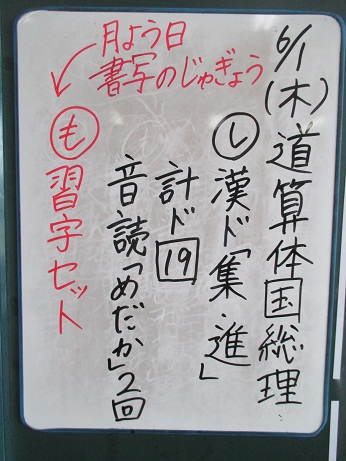 6/1(木)道算体国総理
し漢ド「集・進」
計ド19
音読「めだか」2回
も習字セット
月よう日
書写のじゅぎょう